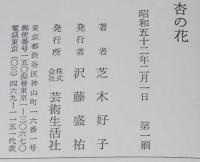 杏の花
昭和五十二年二月一日　第一刷
著者　芝木好子
発行者　沢藤盛祐
発行所　株式会社　芸術生活社
東京都渋谷区神山町一六番一号
郵便番号一五〇振替東京一―三〇六七〇
電話東京(〇三)四六九―一一五一代表